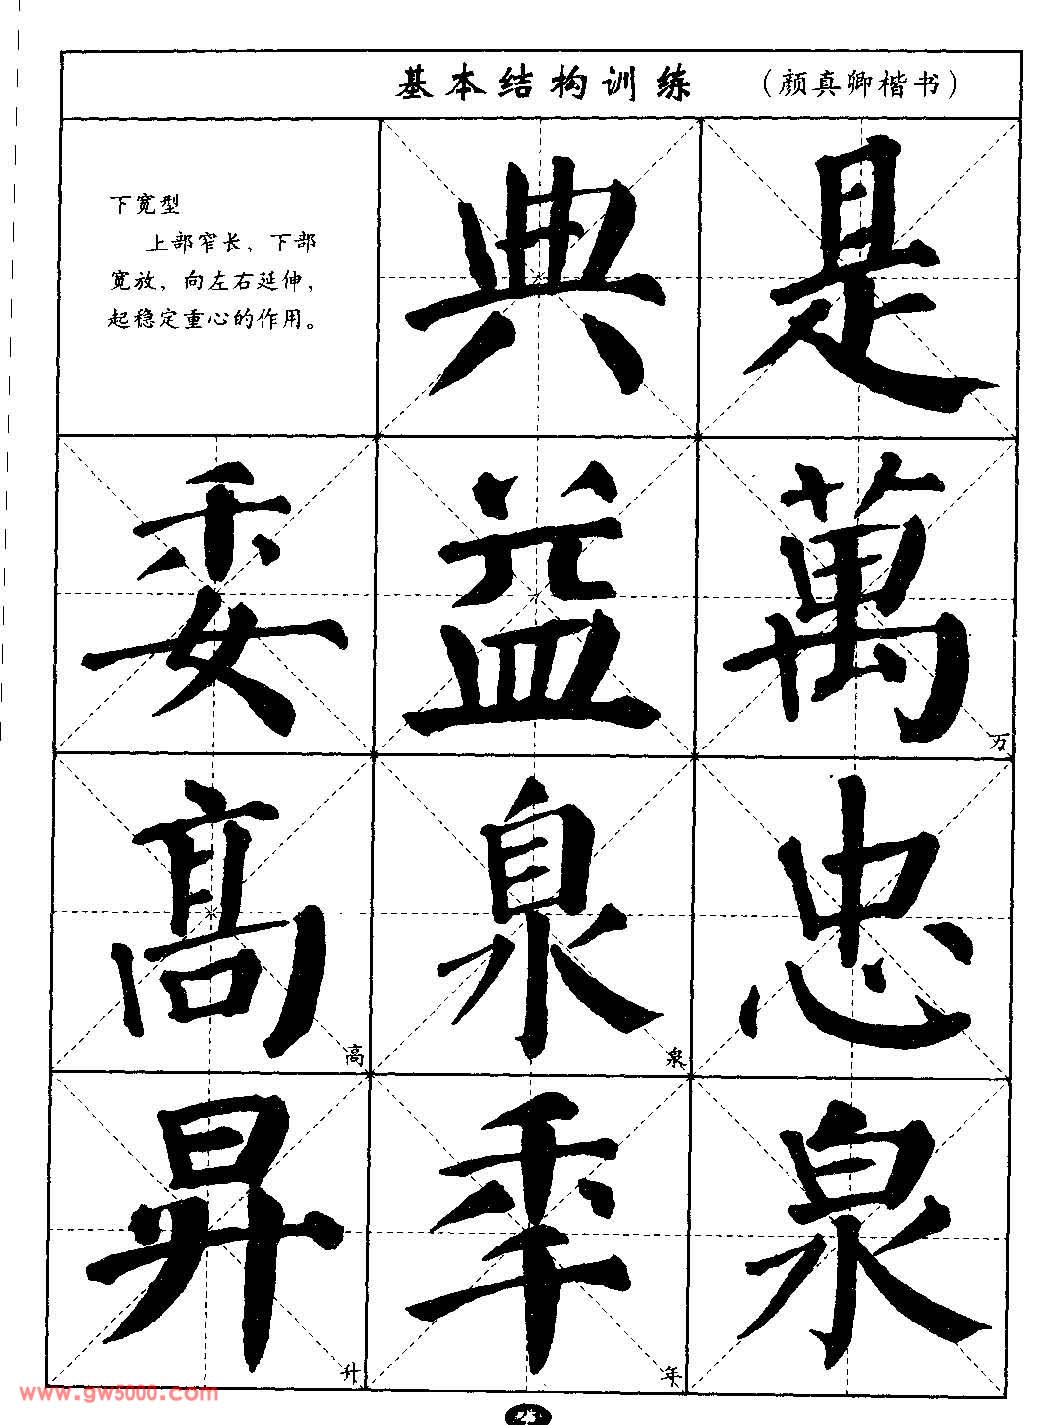 基本结构训练 (颜真卿楷书)
下宽型
上部窄长、下部
宽放,向左右延伸,
起稳定重心的作用。
典 是
委 益 萬 万
髙 高 泉 泉 忠
昇 升 秊 年 泉
www.gw5000.com